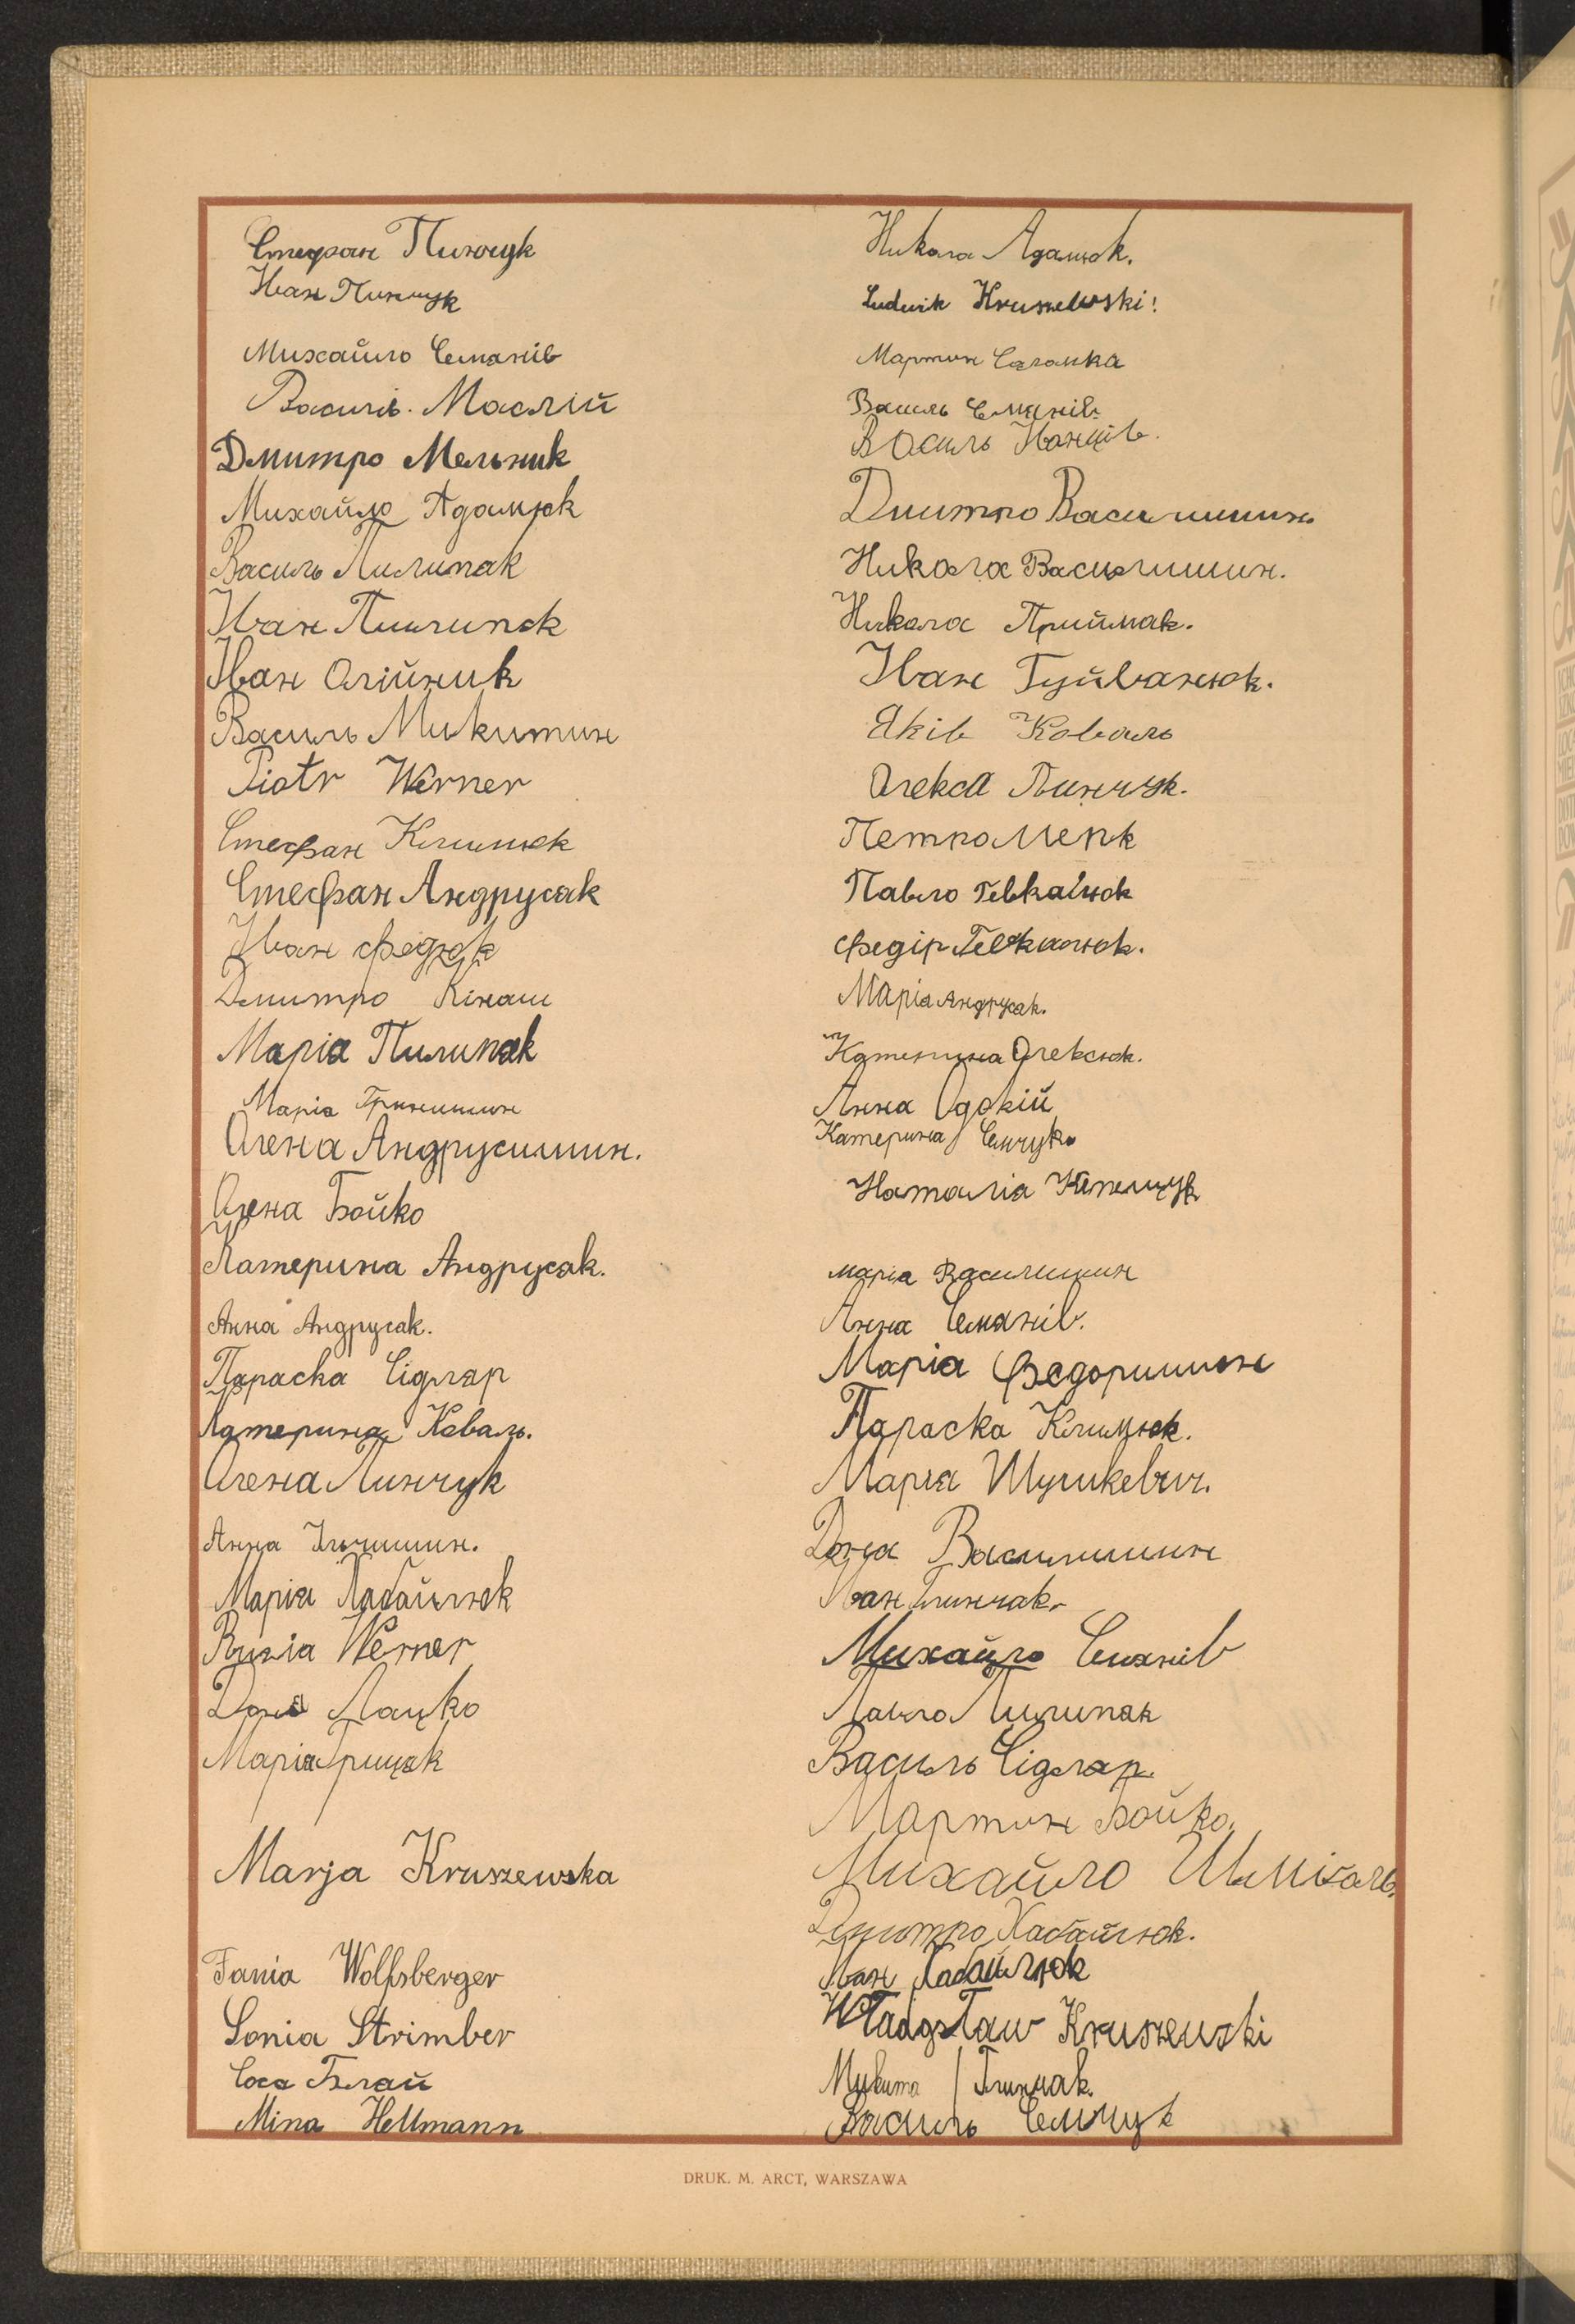 Стефан Пінчук
Іван Пинчук
Михайло Семанів
Василь. Маслій
Дмитро Мельник
Михайло Адамюк
Василь Пилипак
Іван Пилипак
Іван Олійник
Василь Микитин
Piotr Werner
Стефан Климюк
Стефан Андрусак
Іван Федюк
Дмитро Кінаш
Марія Пилипак
Марія Гринишин
Олена Андрусишин.
Олена Бойко
Катерина Андрусак.
Анна Андрусак.
Параска Сідляр
Катерина Коваль.
Олена Пинчук
Анна Ільчишин.
Марія Хабайлюк
Рузіа Werner
Доня Лацко
Марія Грицак
Marja Kruszewska
Fania Wolfsberger
Sonia Strimber
Mina Hellmann
Никола Адамюк.
Ludwik Kruszewski!
Мартин
Василь Семанів
Василь Іванців.
Дмитро Василишин
Никола Василишин.
Никола Приймак.
Іван Гуйванюк.
Яків Коваль
Олекса Пинчук.
Петро
Павло
Федір
Марія Андрусак.
Катерина Олексюк.
Анна
Катерина Семчук
Наталія
Марія Василишин
Анна Семанів.
Марія Федоришин
Параска Климюк.
Марія Шушкевич.
Доня Василишин
Іван Глинчак.
Михайло Семанів
Павло Пилипак
Василь Сідляр.
Мартин Бойко.
Михайло
Дмитро Хабайлюк.
Іван Хабайлюк
Władysław Kruszewski
Микита Глинчак.
Василь Семчук
DRUK. M. ARCT, WARSZAWA